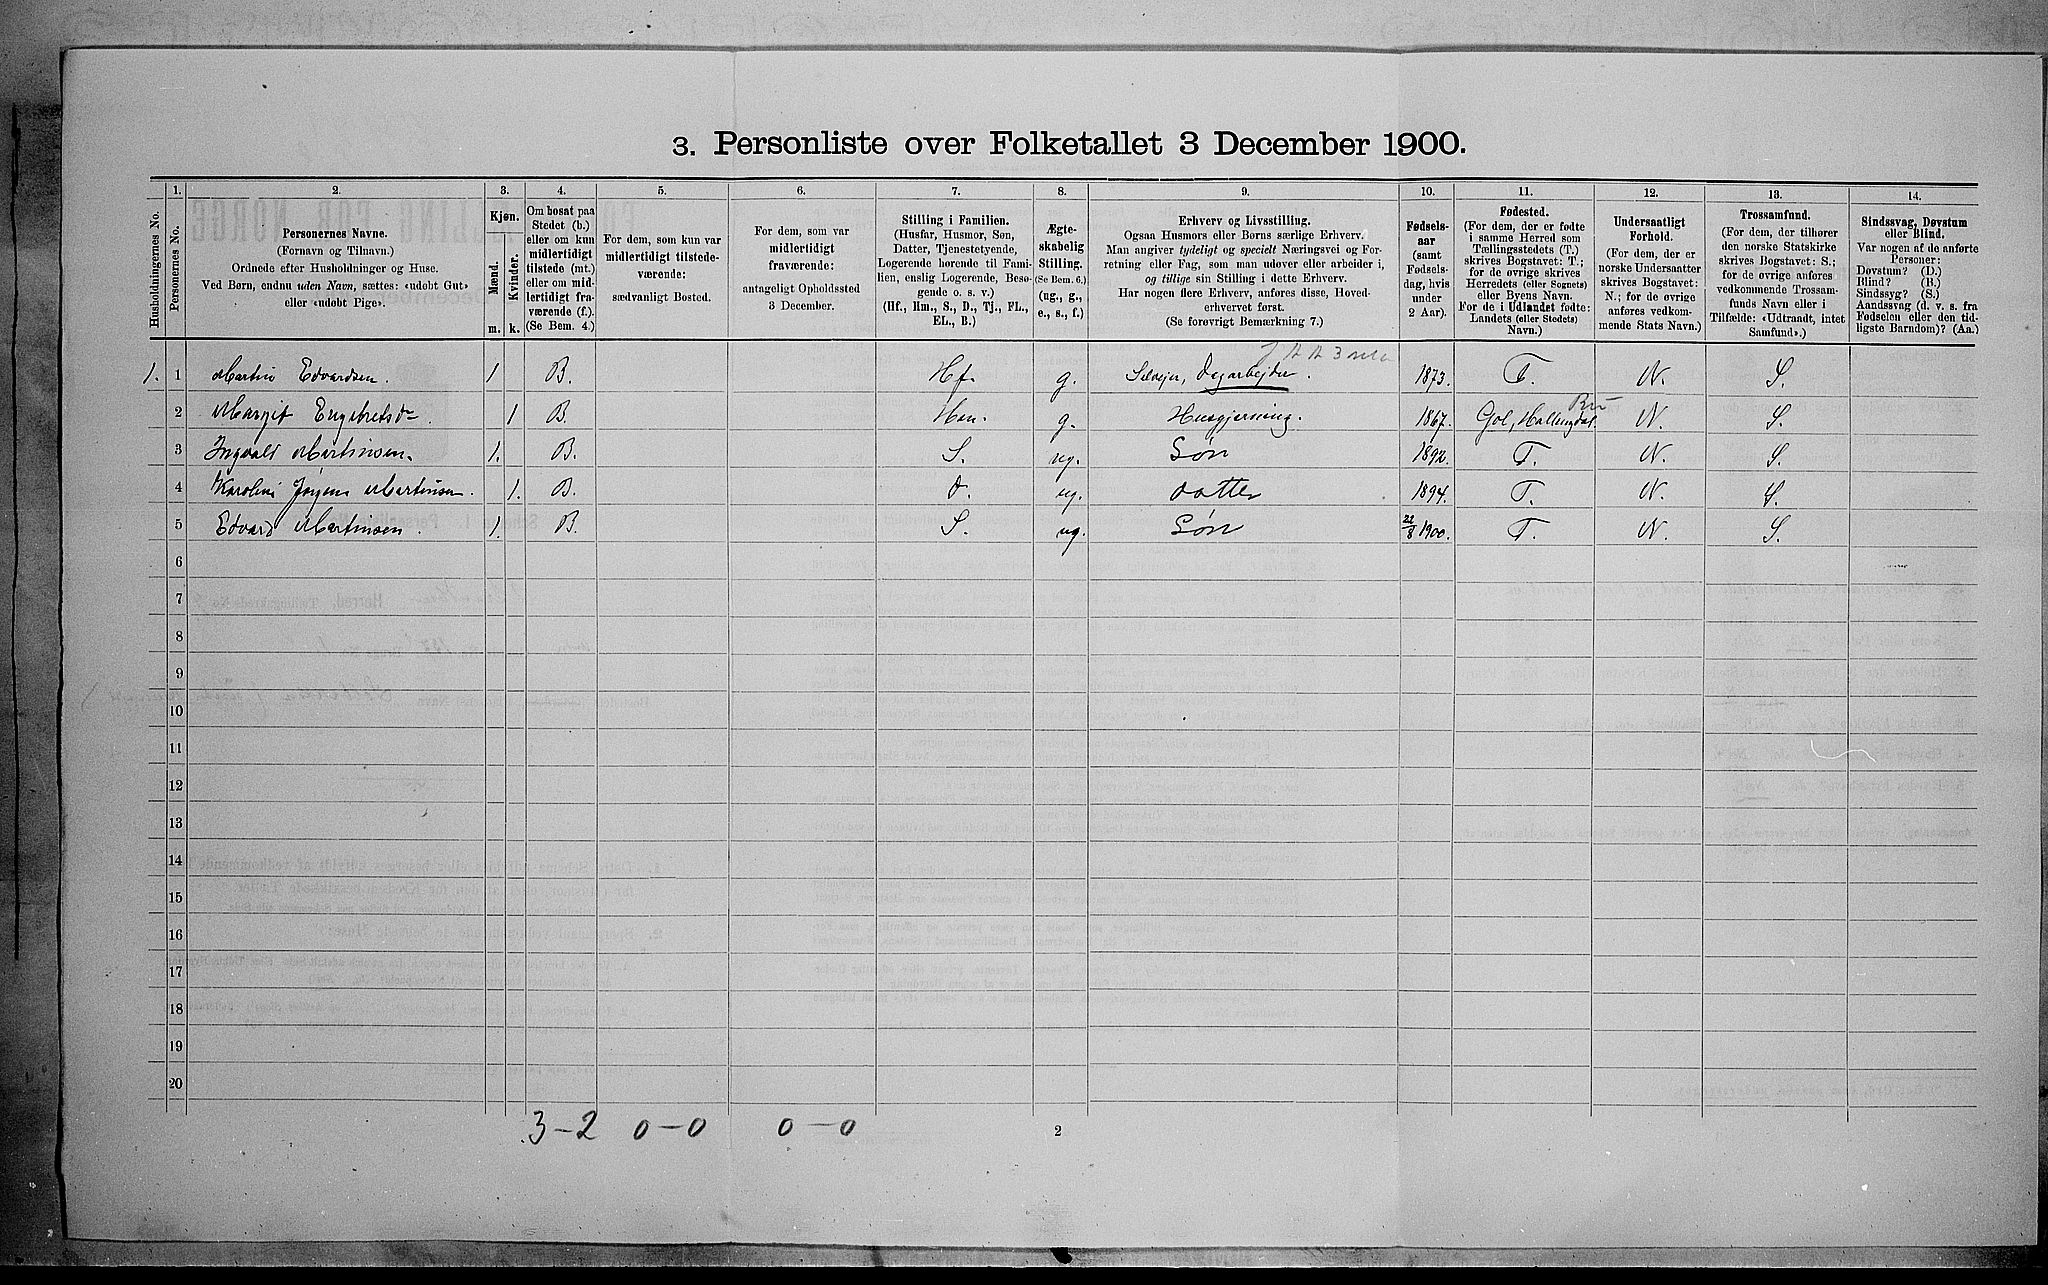 3. Personliste over Folketallet 3 December 1900.
1. 2. 3. 4. 5. 6. 7. 8. 9. 10. 11. 12. 13. 14.
Husholdningernes No.
Personernes No.
Personernes Navne.
(Fornavn og Tilnavn.)
Ordnede efter Husholdninger og Huse.
Ved Børn, endnu uden Navn, sættes: «udøbt Gut»
eller «udøbt Pige».
Kjøn.
Mænd.
Kvinder.
m. k.
Om bosat paa
Stedet (b.)
eller om kun
midlertidigt
tilstede (mt.)
eller om mid-
lertidigt fra-
værende (f.).
(Se Bem. 4.)
For dem, som kun var
midlertidigt tilstede-
værende:
sædvanligt Bosted.
For dem, som var
midlertidigt
fraværende:
antageligt Opholdssted
3 December.
Stilling i Familien.
(Husfar, Husmor, Søn,
Datter, Tjenestetyende,
Logerende hørende til Fami-
lien, enslig Logerende, Besø-
gende o. s. v.)
(Hf., Hm., S., D., Tj., FL.,
EL., B.)
Ægte-
skabelig
Stilling.
(Se Bem. 6.)
(ug., g.,
e., s., f.)
Erhverv og Livsstilling.
Ogsaa Husmors eller Børns særlige Erhverv.
Man angiver tydeligt og specielt Næringsvei og For-
retning eller Fag, som man udøver eller arbeider i,
og tillige sin Stilling i dette Erhverv.
Har nogen flere Erhverv, anføres disse, Hoved-
erhvervet først.
(Se forøvrigt Bemærkning 7.)
Fødsels-
aar
(samt
Fødsels-
dag, hvis
under
2 Aar).
Fødested.
(For dem, der er fødte
i samme Herred som
Tællingsstedets (T.)
skrives Bogstavet: T.;
for de øvrige skrives
Herredets (eller Sognets)
eller Byens Navn.
For de i Udlandet fødte:
Landets (eller Stedets)
Navn.)
Undersaatligt
Forhold.
(For dem, der er
norske Undersaatter
skrives Bogstavet:
N.; for de øvrige
anføres vedkom-
mende Stats Navn.)
Trossamfund.
(For dem, der tilhører
den norske Statskirke
skrives Bogstavet: S.;
for de øvrige anføres
vedkommende Trossam-
funds Navn eller i
Tilfælde: «Udtraadt, intet
Samfund».)
Sindssvag, Døvstum
eller Blind.
Var nogen af de anførte
Personer:
Døvstum? (D.)
Blind? (B.)
Sindssyg? (S.)
Aandssvag (d. v. s. fra
Fødselen eller den tid-
ligste Barndom)? (Aa.)
1. 1 Martin Edvardsen. 1 B. Hf. g. Selvejer, Dagarbejder. 1873. T. N. S.
2 Margit Engebretsd. 1 B. Hm. g. Husgjerning. 1867. Gol, Hallingdal. N. S.
3 Ingvald Martinsen. 1. B. S. ug. Søn 1892. T. N. S.
4 Karoline Jørgine Martinsen. 1. B. d. ug. datter 1894. T. N. S.
5 Edvard Martinsen. 1. B. S. ug. Søn 22/8 1900. T. N. S.
6
7
8
9
10
11
12
13
14
15
16
17
18
19
20
3-2 0-0 0-0 2